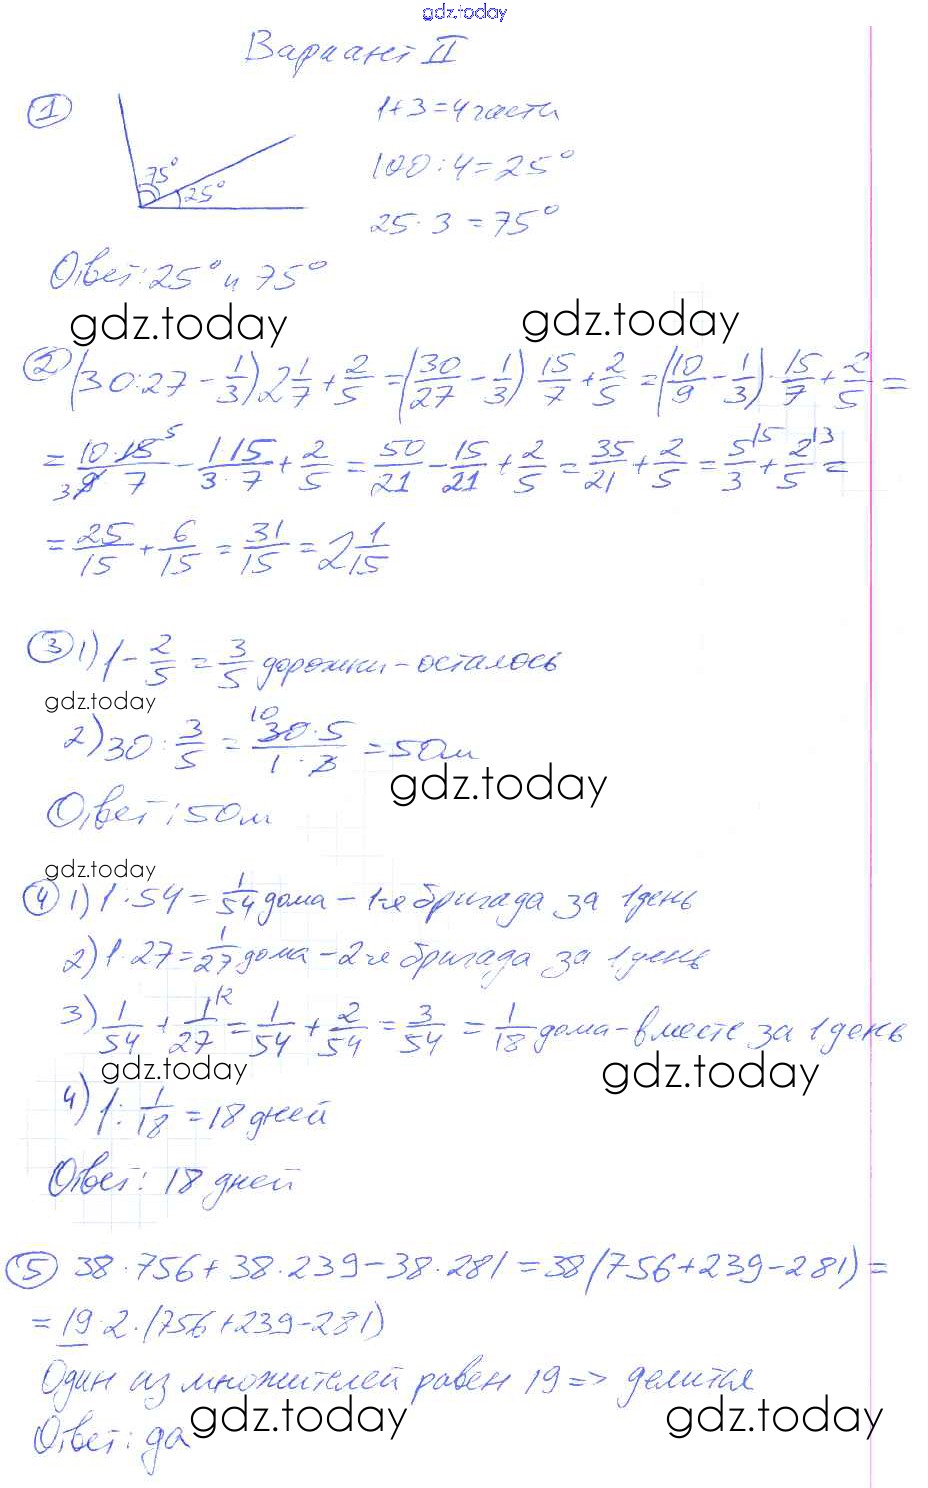 gdz.today
Вариант II
1
1+3=4части
100:4=25°
75°
25°
25·3=75°
Ответ: 25° и 75°
gdz.today gdz.today
2 (30:27 - 1/3) 2 1/7 + 2/5 = (30/27 - 1/3) 15/7 + 2/5 = (10/9 - 1/3) · 15/7 + 2/5 =
= 10·15 5 / 3 9 7 - 1·15/3·7 + 2/5 = 50/21 - 15/21 + 2/5 = 35/21 + 2/5 = 5/3 |5 + 2/5 |3 =
= 25/15 + 6/15 = 31/15 = 2 1/15
3 1) 1 - 2/5 = 3/5 дорожки - осталось
gdz.today
2) 30 : 3/5 = 10 30·5/1·3 = 50м
gdz.today
Ответ: 50м
gdz.today
4 1) 1·54 = 1/54 дома - 1-я бригада за 1 день
2) 1·27 = 1/27 дома - 2-я бригада за 1 день
3) 1/54 + 1/27 |2 = 1/54 + 2/54 = 3/54 = 1/18 дома - вместе за 1 день
gdz.today gdz.today
4) 1 : 1/18 = 18 дней
Ответ: 18 дней
5 38·756+38·239-38·281=38(756+239-281)=
=19·2·(756+239-281)
Один из множителей равен 19 => делится
gdz.today gdz.today
Ответ: да